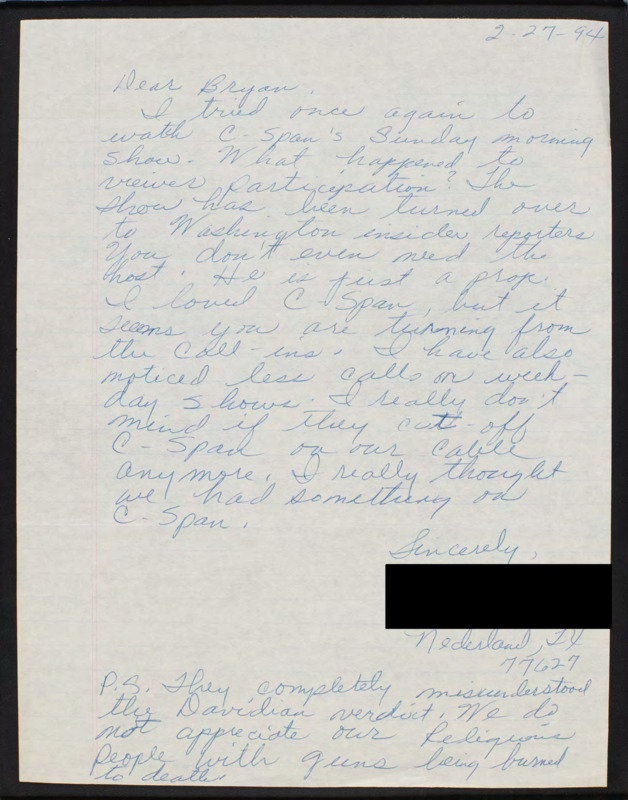 2-27-94
Dear Bryan,
I tried once again to
wath C-Span's Sunday morning
show. What happened to
viewer participation? The
show has been turned over
to Washington insider reporters
You don't even need the
host. He is just a prop.
I loved C-Span, but it
seems you are turning from
the call-ins. I have also
noticed less calls on week-
day shows. I really don't
mind if they cut-off
C-Span on our cable
anymore. I really thought
we had something on
C-Span.
Sincerely,
Nederland, TX
77627
P.S. They completely misunderstood
the Davidian verdict. We do
not appreciate our Religious
People with guns being burned
to death